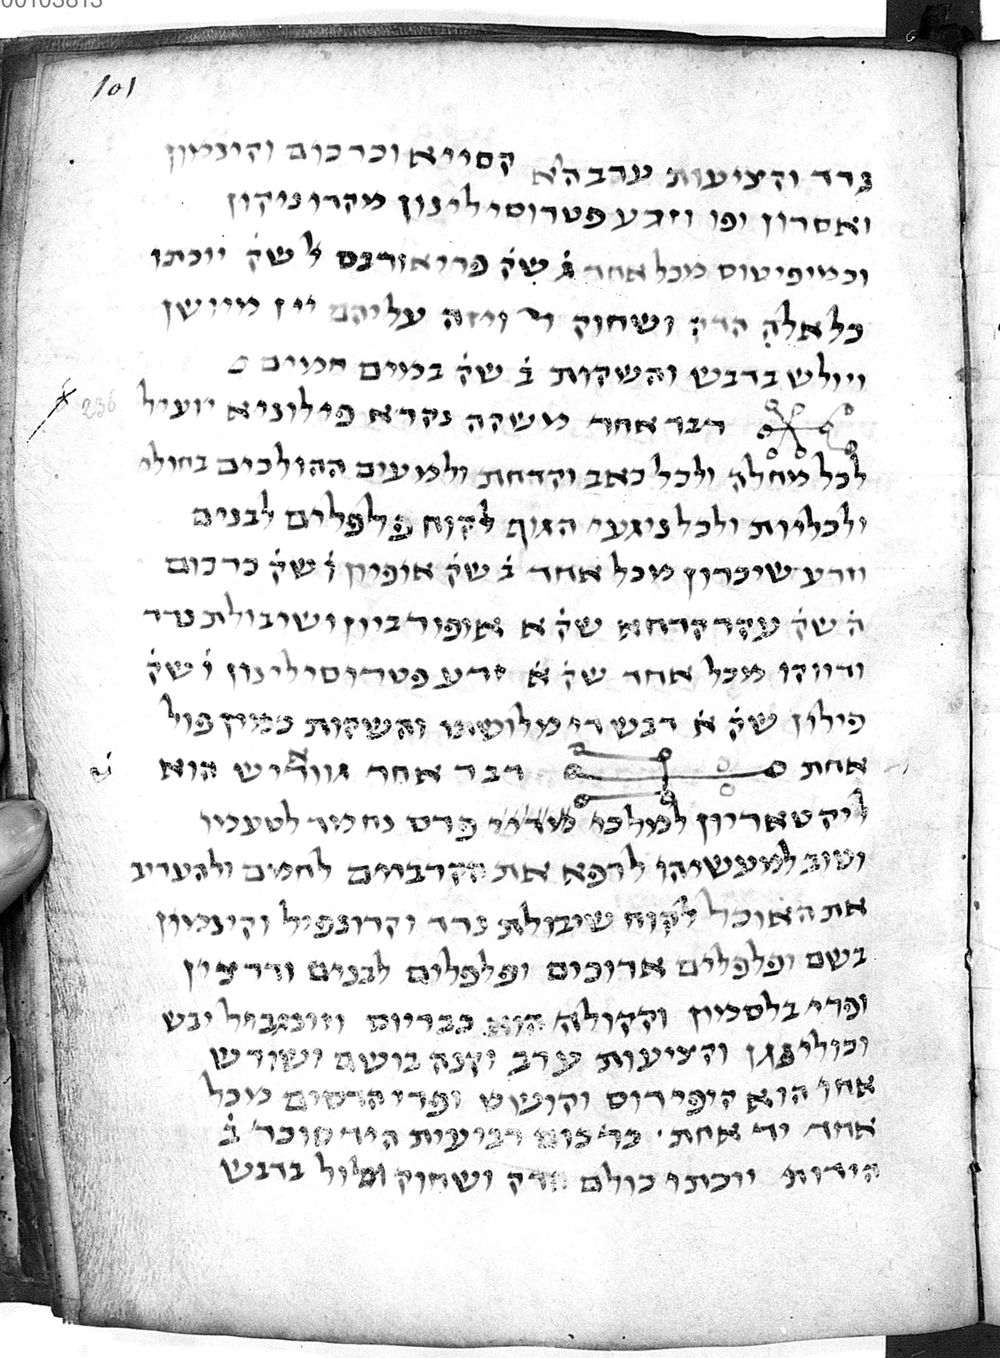 00103813
101
נרד והציעות ערבהא קסייא וכרכום והינמון
ואסרון ופו וזרע פטרוסילינון מקרוניקון
וכמיפיטוס מכל אחד ג׳ שק׳ פריאורבס ל׳ שק׳ יוכתו
כל אלה הדק ושחוק ויזה עליהם יין מיושן
ויולש בדבש והשקות ב׳ שק׳ במים חמים
236
דבר אחר משקה נקרא פילוניא יועיל
לכל מחלה ולכל כאב וקדחת ולמעים ההולכים בחולי
ולכליות ולכל ניגעי הגוף לקוח פלפלים לבנים
וזרע שיכרון מכל אחד ב׳ שק׳ אופיון ו׳ שק׳ כרכום
ה׳ שק׳ עקרקרחא שק׳ א אופורביון ושיבולת נרד
ודווקו מכל אחד שק׳ א׳ זרע פטרוסילינון ו׳ שק׳
פילון שק׳ א׳ דבש די מלושתו והשקות כמין פול
אחת דבר אחר גוואריש הוא
ליקטואריון למלכי מדי פרס נחמד לטעמו
וטוב למעשיהו לרפא את הקרביים לחמם ולהעריב
את האוכל לקוח שיבולת נרד וקרונפיל וקינמון
בשם ופלפלים ארוכים ופלפלים לבנים ודרצין
ופרי בלסמון וקקולה הוא כבריוס וזינגביל יבש
וכוליפגן והציעות ערב וקנה בושם ושורש
אחו הוא קיפירוס וקושט ופרי הדסים מכל
אחד יד אחת כרכום רביעית היד סוכר ב׳
הידות יוכתו כולם הדק ושחוק ובלול בדבש